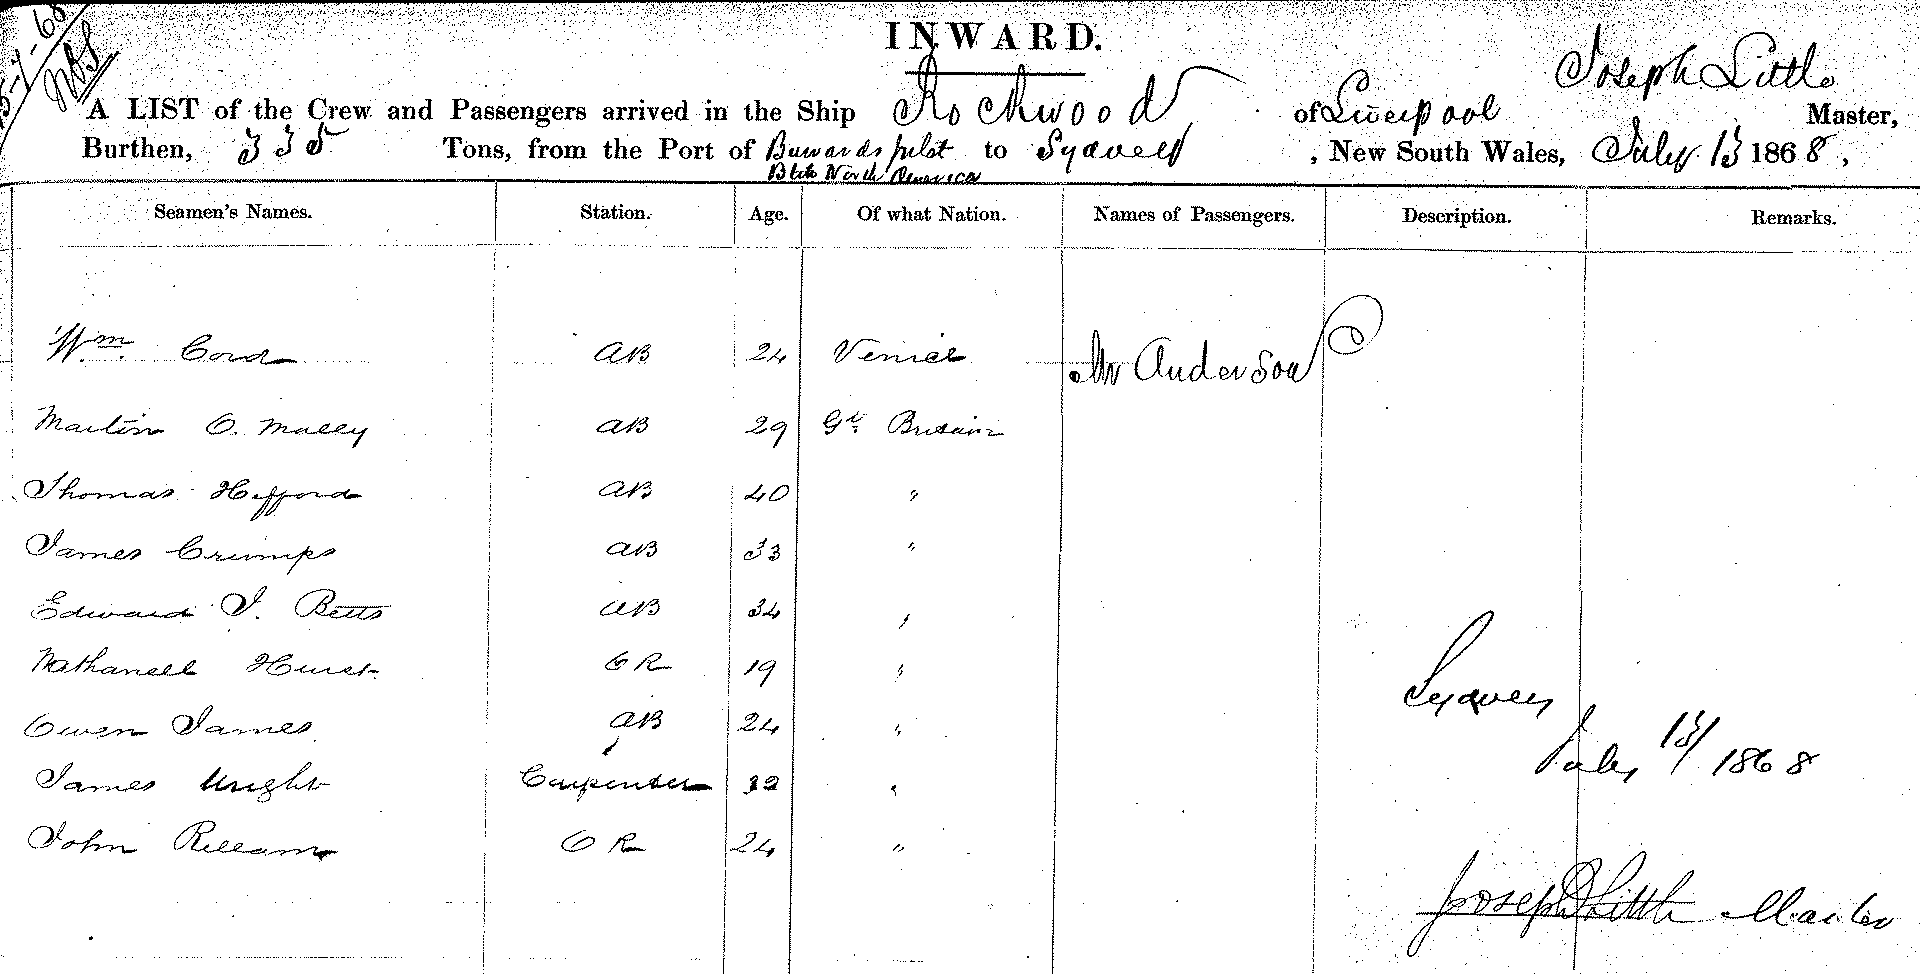 INWARD.
Joseph Little
A LIST of the Crew and Passengers arrived in the Ship Rockwood of Liverpool Master,
Burthen, 335 Tons, from the Port of to Sydney , New South Wales, July 13 1868,
North America
Seamen's Names. Station. Age. Of what Nation. Names of Passengers. Description. Remarks.
Wm. Cord AB 24 Venice Mr Anderson
Martin O. Malley AB 29 Gt. Britain
Thomas Hefford AB 40 "
James Crumps AB 33 "
Edward J. Betts AB 34 "
Nathanell Hurst OR 19 "
Owen James AB 24 "
James Wright Carpenter 32 "
John OR 24 "
Sydney
July 13/1868
Joseph Little Master